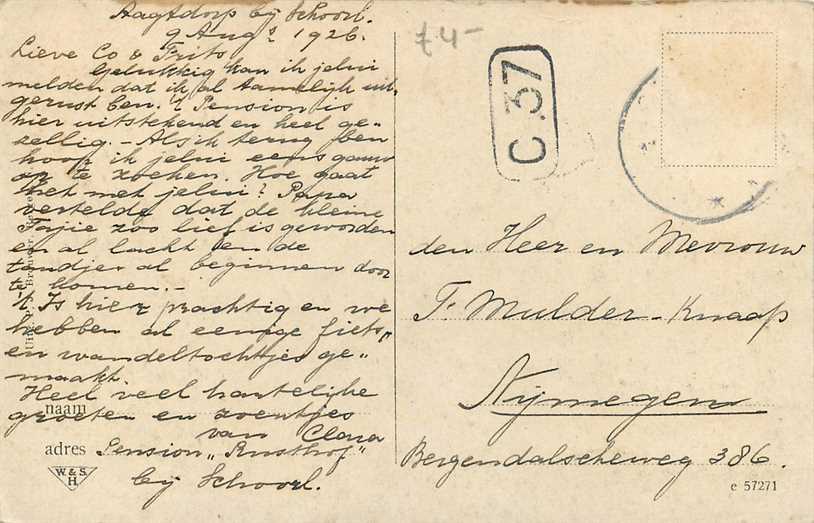 Aagtdorp bij Schoorl.
9 Aug. 1926.
Lieve Co & Frits
Gelukkig kan ik jelui
melden dat ik al tamelijk uit-
gerust ben. 't Pension is
hier uitstekend en heel ge-
zellig. - Als ik terug ben
hoop ik jelui eens gauw
op te zoeken. Hoe gaat
het met jelui? Papa
vertelde dat de kleine
zoo lief is geworden
en al lacht en de
tandjes al beginnen door
te komen. -
't Is hier prachtig en we
hebben al eenige fiets-
en wandeltochtjes ge-
maakt.
Heel veel hartelijke
groeten en zoentjes
van Clara
Pension "Rusthof"
bij Schoorl.
naam
adres
W. & S.
H.
74-
C. 37
den Heer en Mevrouw
F. Mulder - Knaap
Nijmegen
Bergendalscheweg 386.
c 57271